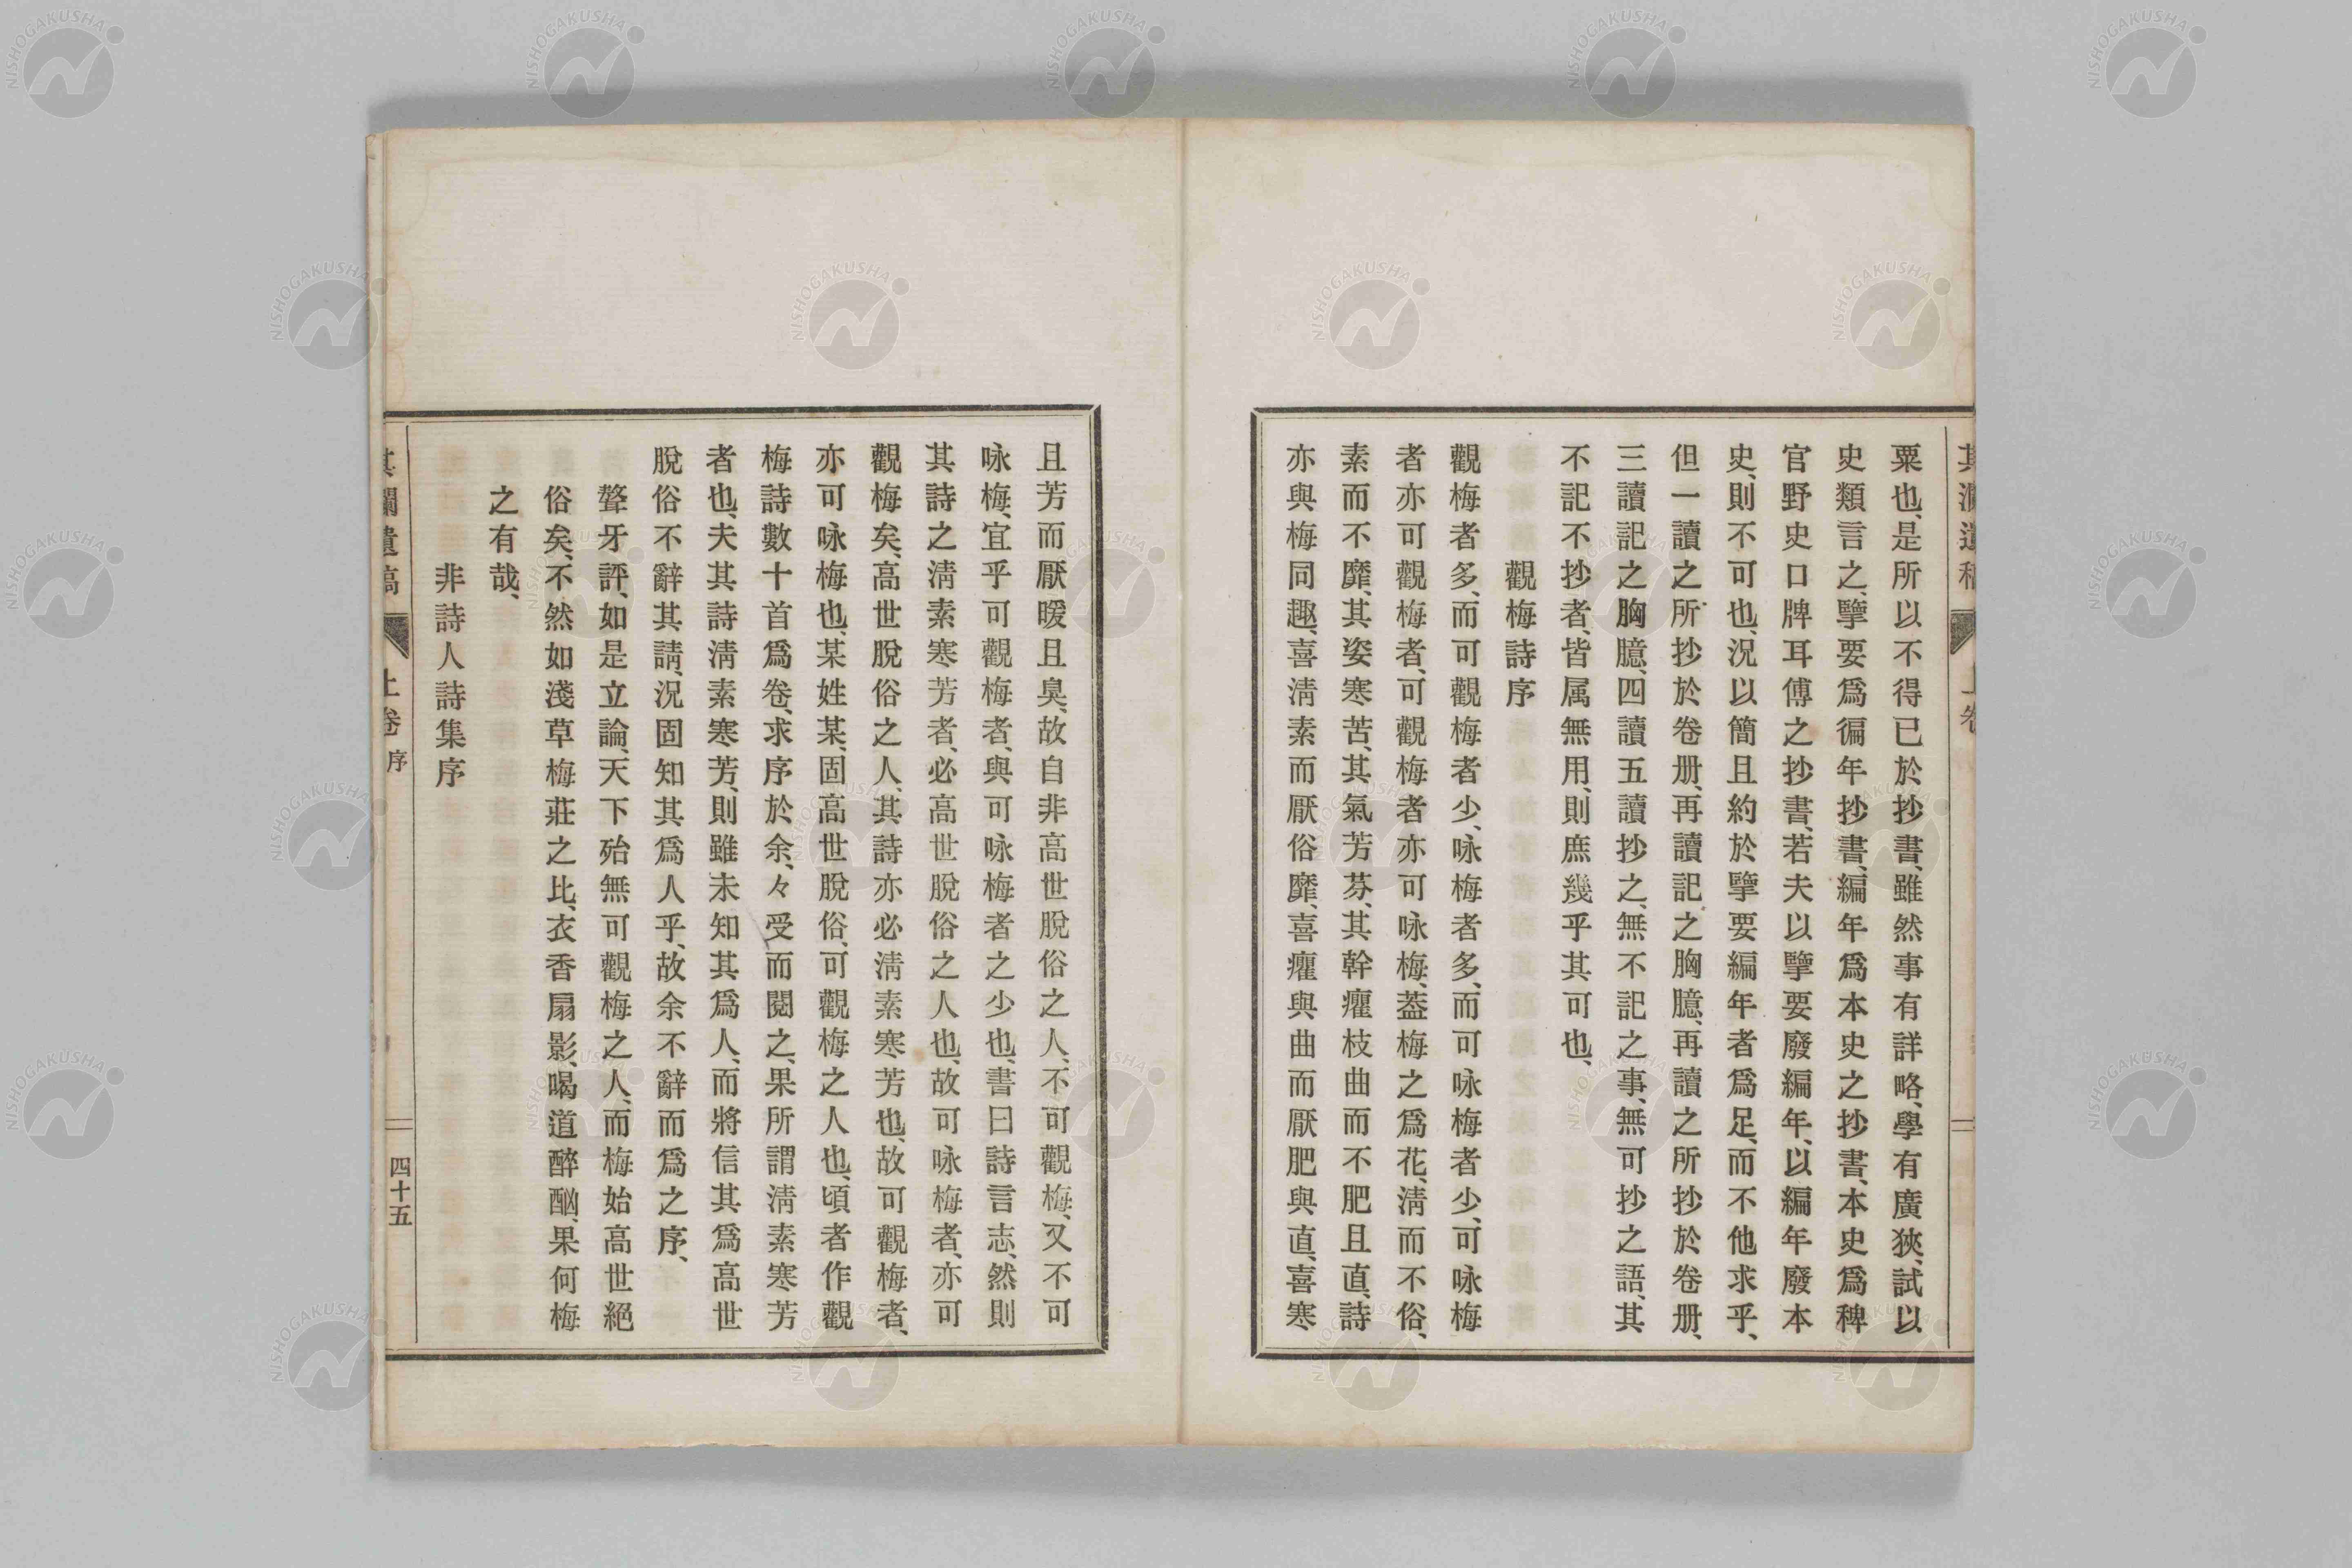 粟也、是所以不得已於抄書、雖然事有詳略、學有廣狹、試以
史類言之、擥要爲徧年抄書、編年爲本史之抄書、本史爲稗
官野史口牌耳傅之抄書、若夫以擥要廢編年、以編年廢本
史、則不可也、況以簡且約於擥要編年者爲足、而不他求乎、
但一讀之所抄於卷册、再讀記之胸臆、再讀之所抄於卷册、
三讀記之胸臆、四讀五讀抄之、無不記之事、無可抄之語、其
不記不抄者、皆属無用、則庶幾乎其可也、
觀梅詩序
觀梅者多、而可觀梅者少、咏梅者多、而可咏梅者少、可咏梅
者亦可觀梅者、可觀梅者亦可咏梅、葢梅之爲花、淸而不俗、
素而不靡、其姿寒苦、其氣芳芬、其幹癯枝曲而不肥且直、詩
亦與梅同趣、喜淸素而厭俗靡、喜癯與曲而厭肥與直、喜寒
且芳而厭暖且臭、故自非高世脫俗之人、不可觀梅、又不可
咏梅、宜乎可觀梅者、與可咏梅者之少也、書曰詩言志、然則
其詩之淸素寒芳者、必高世脫俗之人也、故可咏梅者、亦可
觀梅矣、高世脫俗之人、其詩亦必淸素寒芳也、故可觀梅者、
亦可咏梅也、某姓某、固高世脫俗、可觀梅之人也、頃者作觀
梅詩數十首爲卷、求序於余、々受而閱之、果所謂淸素寒芳
者也、夫其詩淸素寒芳、則雖未知其爲人、而將信其爲高世
脫俗不辭其請、況固知其爲人乎、故余不辭而爲之序、
聱牙評、如是立論、天下殆無可觀梅之人、而梅始高世絕
俗矣、不然如淺草梅莊之比、衣香扇影、喝道醉酗、果何梅
之有哉、
非詩人詩集序
其瀾遺稿 上卷 序 四十五